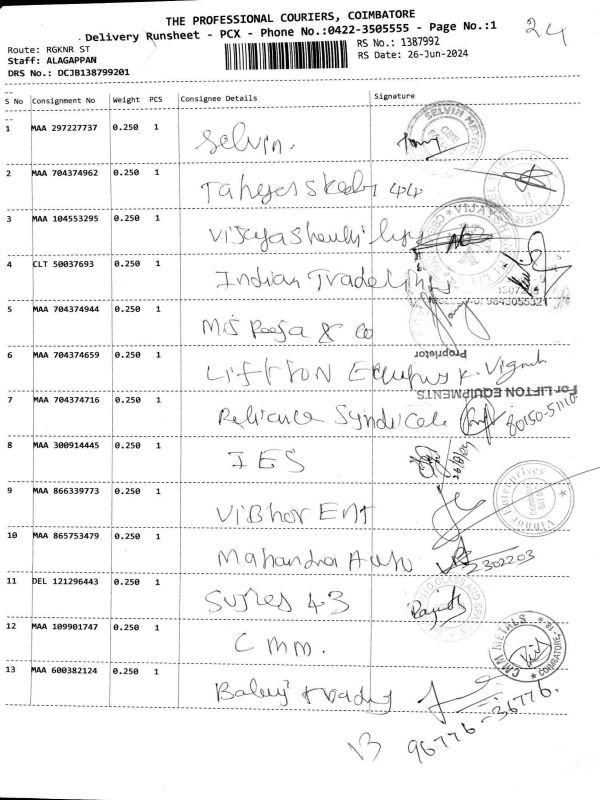 THE PROFESSIONAL COURIERS, COIMBATORE
Delivery Runsheet - PCX - Phone No.:0422-3505555 - Page No.:1
24
Route: RGKNR ST
RS No.: 1387992
Staff: ALAGAPPAN
RS Date: 26-Jun-2024
DRS No.: DCJB138799201
S No Consignment No Weight PCS Consignee Details Signature
1 MAA 297227737 0.250 1 Selvin.
2 MAA 704374962 0.250 1 44
3 MAA 104553295 0.250 1
4 CLT 50037693 0.250 1 Indian Trade
9843055321
5 MAA 704374944 0.250 1 M/s Pooja & Co
Proprietor
6 MAA 704374659 0.250 1 LIFTTON K. Vignesh
For LIFTON EQUIPMENTS
7 MAA 704374716 0.250 1 Reliance Syndicate 80150-51110
8 MAA 300914445 0.250 1 IES
9 MAA 866339773 0.250 1 Vibhor Ent
Vibhor Enterprises
10 MAA 865753479 0.250 1 Mahandra Auto 302203
11 DEL 121296443 0.250 1 Sujres 43
12 MAA 109901747 0.250 1 Cmm.
CMM METALS
COIMBATORE
13 MAA 600382124 0.250 1 Balaji trading
13 96776-36776.